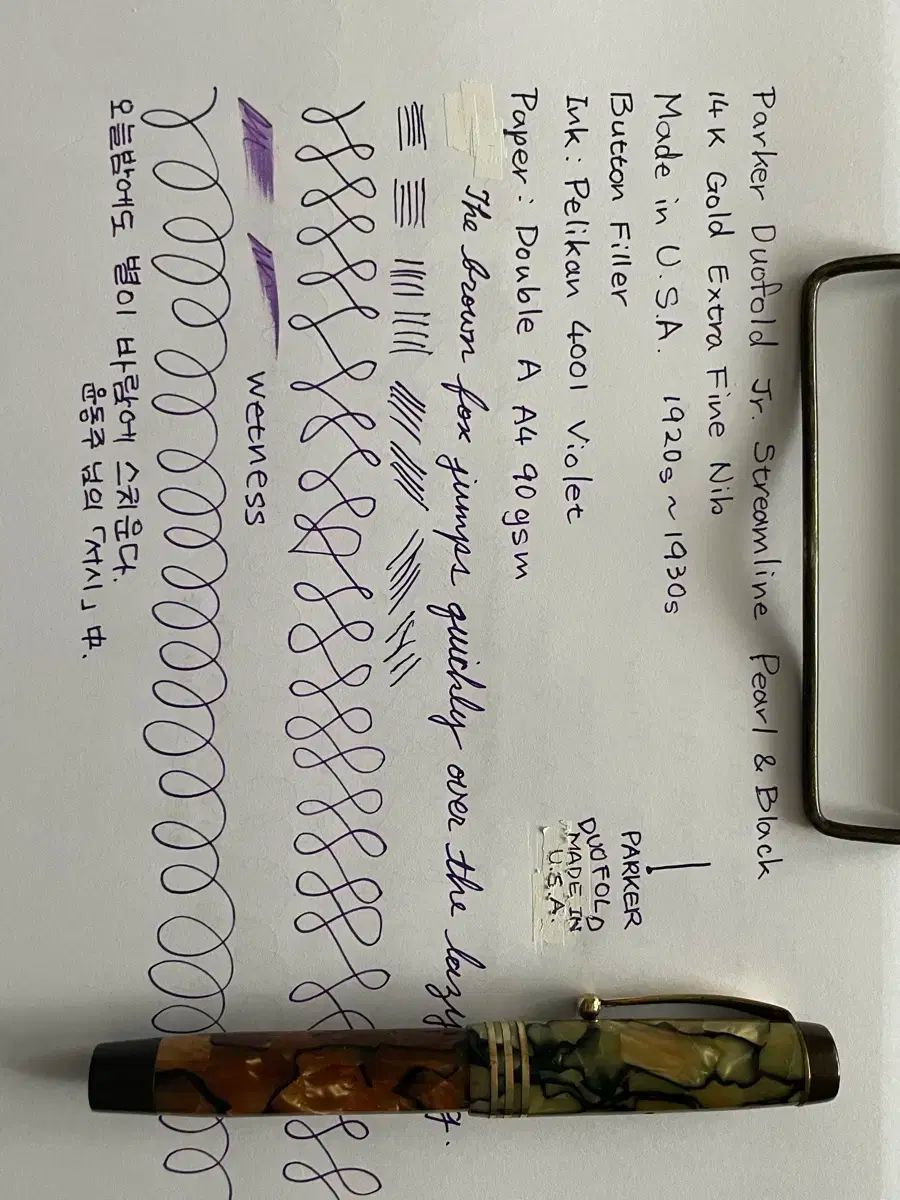 Parker Duofold Jr. Streamline Pearl & Black
14K Gold Extra Fine Nib
Made in U.S.A. 1920s ~ 1930s
Button Filler
Ink: Pelikan 4001 Violet
Paper: Double A A4 90gsm
PARKER
DUOFOLD
MADE IN
U.S.A.
The brown fox jumps quickly over the lazy
wetness
오늘밤에도 별이 바람에 스치운다.
윤동주 님의 「서시」 中.